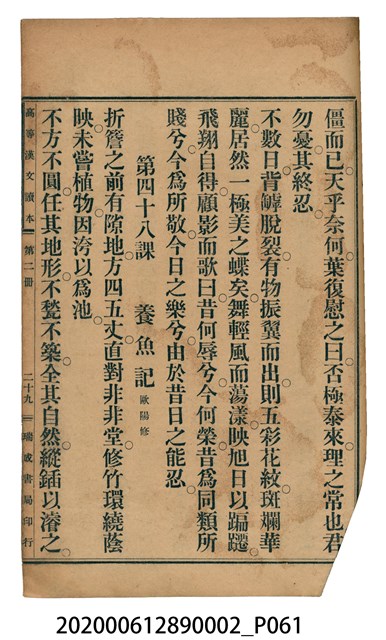 僵而已天乎奈何葉復慰之曰否極泰來理之常也君
勿憂其終忍
不數日背罅脫裂有物振翼而出則五彩花紋斑斕華
麗居然一極美之蝶矣舞輕風而蕩漾映旭日以蹁躚
飛翔自得顧影而歌曰昔何辱兮今何榮昔為同類所
賤兮今為所敬今日之樂兮由於昔日之能忍
第四十八課　養魚記　歐陽修
折簷之前有隙地方四五丈直對非非堂修竹環繞蔭
映未嘗植物因洿以為池
不方不圓任其地形不甃不築全其自然縱鍤以濬之
高等漢文讀本　第二冊　二十九　瑞成書局印行
202000612890002_P061